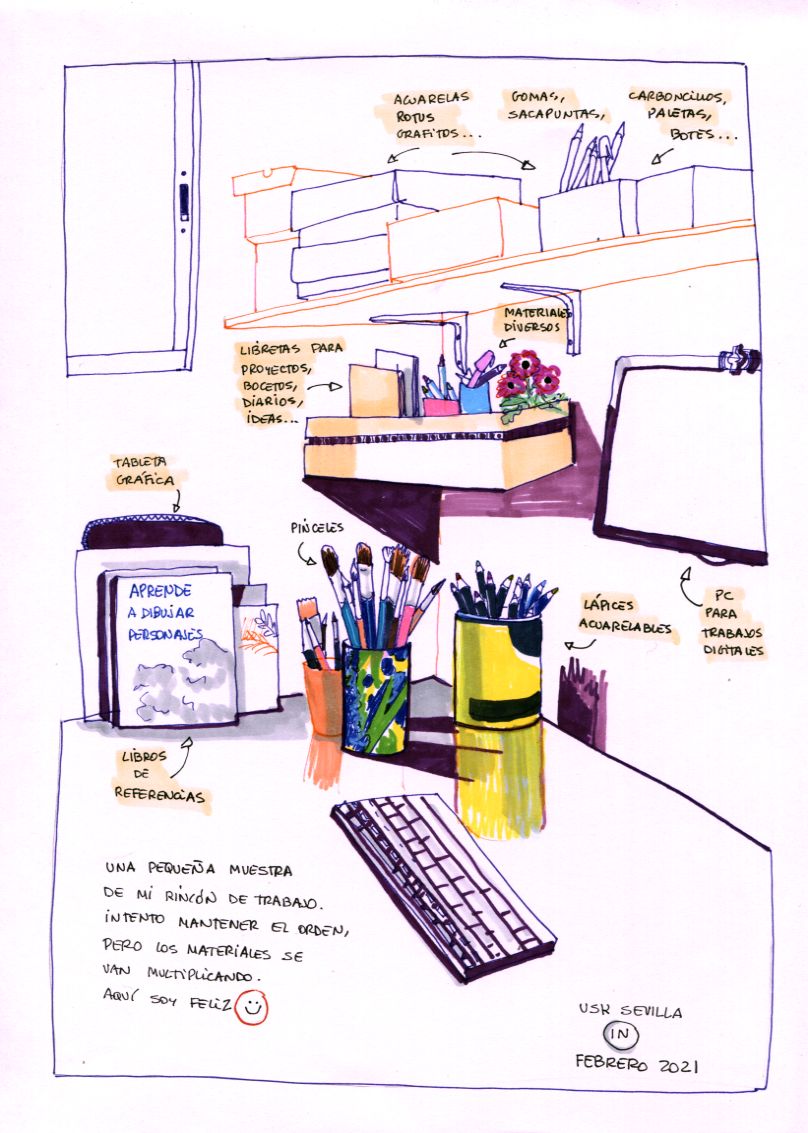 ACUARELAS
ROTUS
GRAFITOS...
GOMAS,
SACAPUNTAS,
CARBONCILLOS,
PALETAS,
BOTES...
MATERIALES
DIVERSOS
LIBRETAS PARA
PROYECTOS,
BOCETOS,
DIARIOS,
IDEAS...
TABLETA
GRÁFICA
PINCELES
APRENDE
A DIBUJAR
PERSONAJES
LÁPICES
ACUARELABLES
PC
PARA
TRABAJOS
DIGITALES
LIBROS
DE
REFERENCIAS
UNA PEQUEÑA MUESTRA
DE MI RINCÓN DE TRABAJO.
INTENTO MANTENER EL ORDEN,
PERO LOS MATERIALES SE
VAN MULTIPLICANDO.
AQUÍ SOY FELIZ
USK SEVILLA
IN
FEBRERO 2021